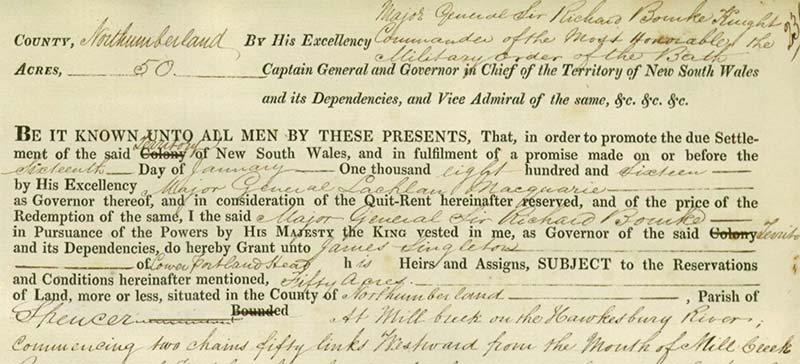 Major General Sir Richard Bourke Knight
COUNTY, Northumberland BY HIS EXCELLENCY Commander of the Most Honorable the
Military Order of the Bath
ACRES, 50 Captain General and Governor in Chief of the Territory of New South Wales
and its Dependencies, and Vice Admiral of the same, &c. &c. &c.
BE IT KNOWN UNTO ALL MEN BY THESE PRESENTS, That, in order to promote the due Settle-
Territory
ment of the said Colony of New South Wales, and in fulfilment of a promise made on or before the
Sixteenth Day of January One thousand eight hundred and sixteen
by His Excellency Major General Lachlan Macquarie
as Governor thereof, and in consideration of the Quit-Rent hereinafter reserved, and of the price of the
Redemption of the same, I the said Major General Sir Richard Bourke
in Pursuance of the Powers by HIS MAJESTY the KING vested in me, as Governor of the said Colony Territory
and its Dependencies, do hereby Grant unto James Singleton
of Lower Portland Head his Heirs and Assigns, SUBJECT to the Reservations
and Conditions hereinafter mentioned, Fifty Acres
of Land, more or less, situated in the County of Northumberland, Parish of
Spencer Bounded At Mill Creek on the Hawkesbury River;
commencing two chains fifty links Westward from the Mouth of Mill Creek